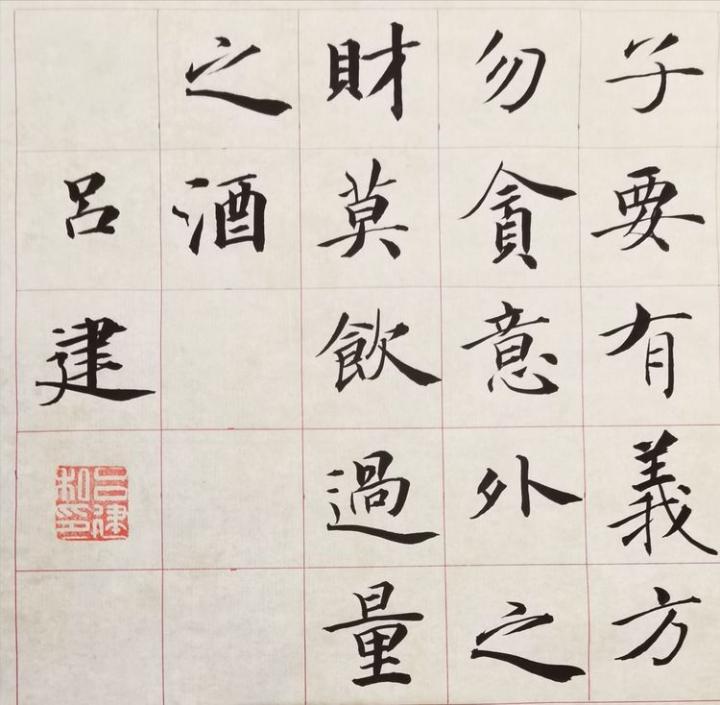 子要有義方
勿貪意外之
財莫飲過量
之酒
呂建
吕建私印